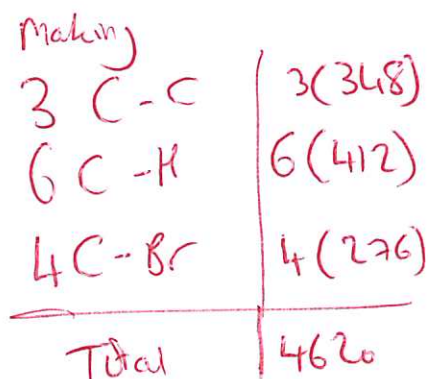 Making
3 C-C 3(348)
6 C-H 6(412)
4 C-Br 4(276)
Total 4620